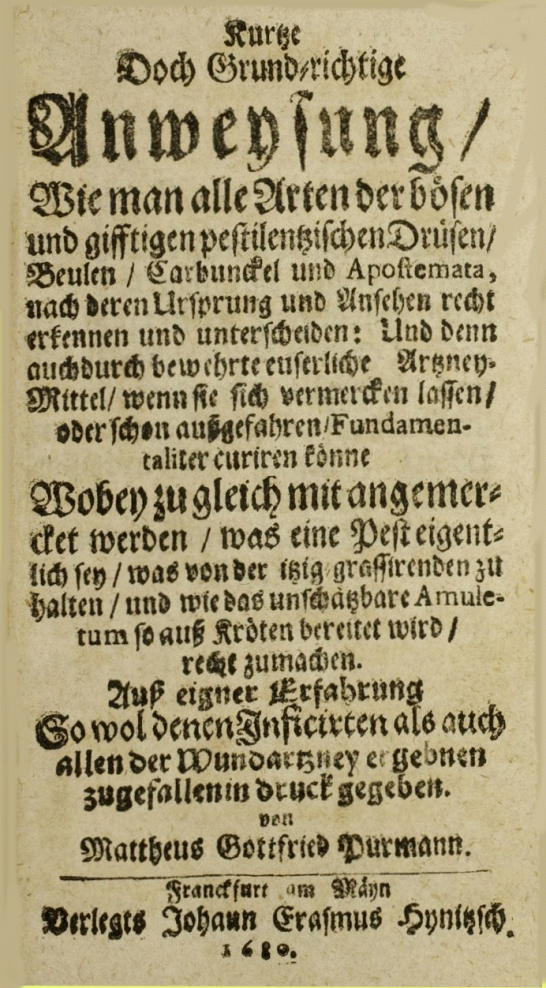 Kurtze
Doch Grund-richtige
Anweysung /
Wie man alle Arten der bösen
und gifftigen pestilentzischen Drüsen /
Beulen / Carbunckel und Apostemata,
nach deren Ursprung und Ansehen recht
erkennen und unterscheiden: Und denn
auch durch bewehrte euserliche Artzney-
Mittel / wenn sie sich vermercken lassen /
oder schon außgefahren / Fundamen-
taliter curiren könne
Wobey zu gleich mit angemer-
cket werden / was eine Pest eigent-
lich sey / was von der itzig grassirenden zu
halten / und wie das unschätzbare Amule-
tum so auß Kröten bereitet wird /
recht zumachen.
Auß eigner Erfahrung
So wol denen Inficirten als auch
allen der Wundartzney ergebnen
zugefallen in druck gegeben.
von
Mattheus Gottfried Purmann.
Franckfurt am Mäyn
Verlegts Johann Erasmus Hynitzsch.
1680.